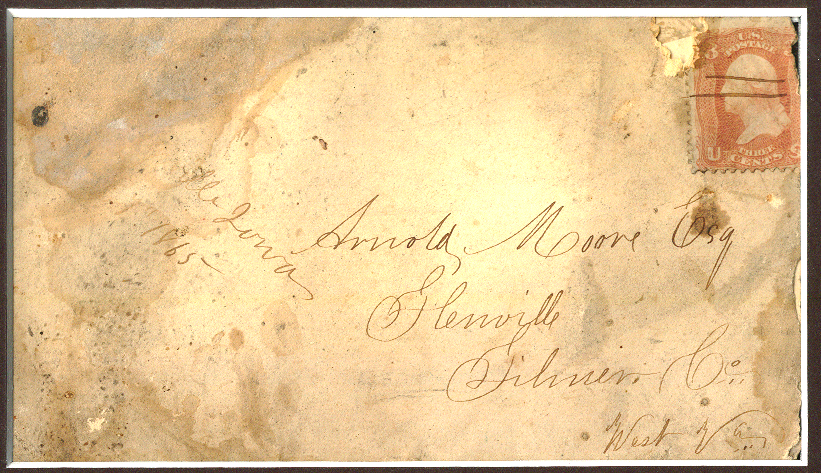 U.S.
POSTAGE
U THREE S
CENTS
Iowa
1865
Arnold Moore Esq
Glenville
Gilmer Co.
West Va